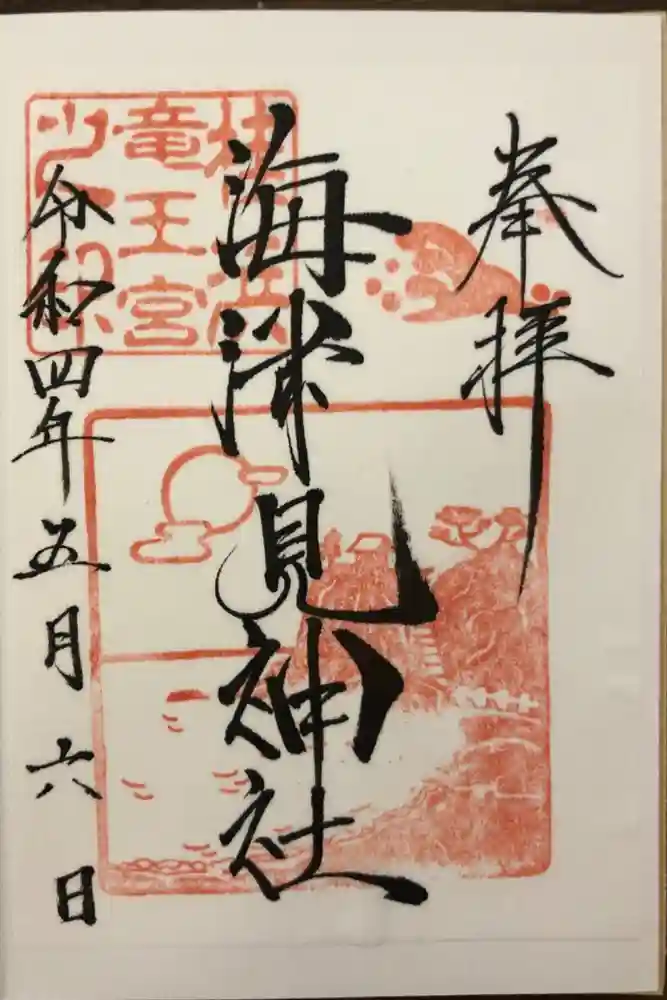 奉拝
海津見神社
竜王宮
令和四年五月六日